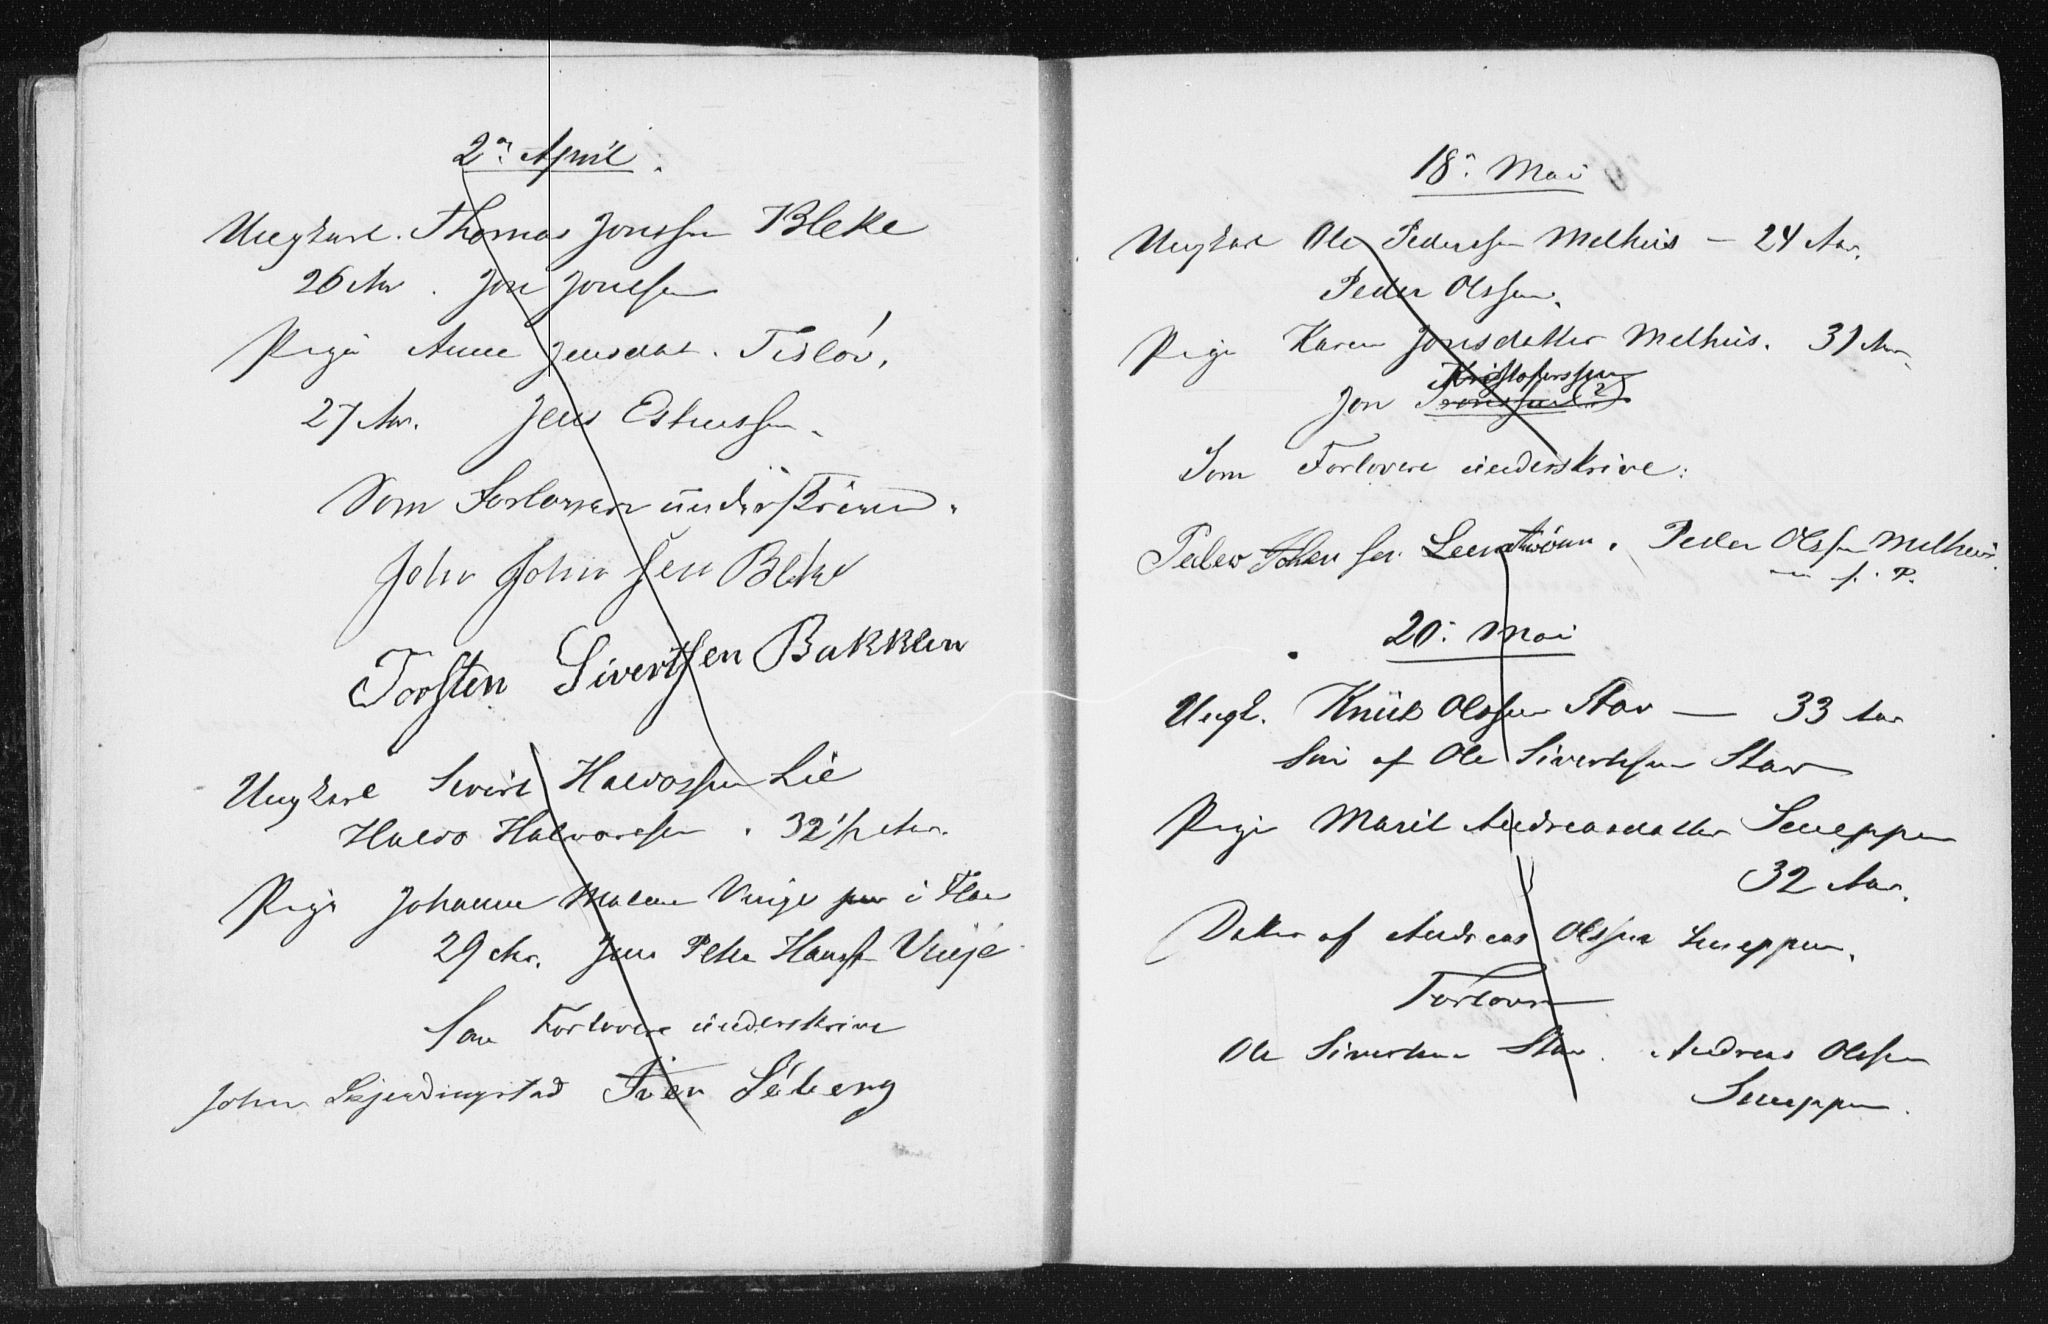 2den April.
Ungkarl. Thomas Jonssen Bleke
26 Aar. Jon Jonssen
Pige Anne Jensdat. Tisløv.
27 Aar. Jens Estenssen.
Som Forlovere underskriver.
John Johnsen Bleke
Torsten Sivertsen Bakklen
Ungkarl Sivert Halvorssen Lie
Halvo Halvorssen. 32 1/2 Aar.
Pige Johanne Malene Vinje i Flaa
29 Aar. Jens Peter Hansen Vinje
Som Forlovere underskrive
John Skjerdingstad Iver Søberg
18. Mai
Ungkarl Ole Pedersen Melhus - 24 Aar.
Peder Olssen.
Pige Karen Jonsdatter Melhus. 31 Aar
Kristoferssen
Jon
Som Forlovere underskrive:
Peder Johansen. Peder Olssen Melhus.
m. f. P.
20. Mai
Ungk. Knut Olssen Stav - 33 Aar
Søn af Ole Sivertssen Stav
Pige Marit Andreasdatter Sneppen
32 Aar.
Datter af Andreas Olssen Sneppen.
Forlovere
Ole Sivertsen Stav. Andreas Olssen
Sneppen.